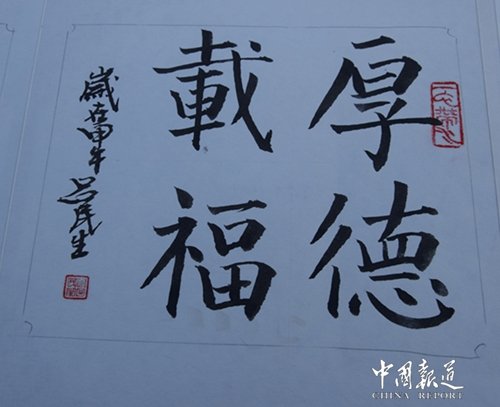 厚德
載福
歲在甲午 吕民生
中國報道
CHINA REPORT